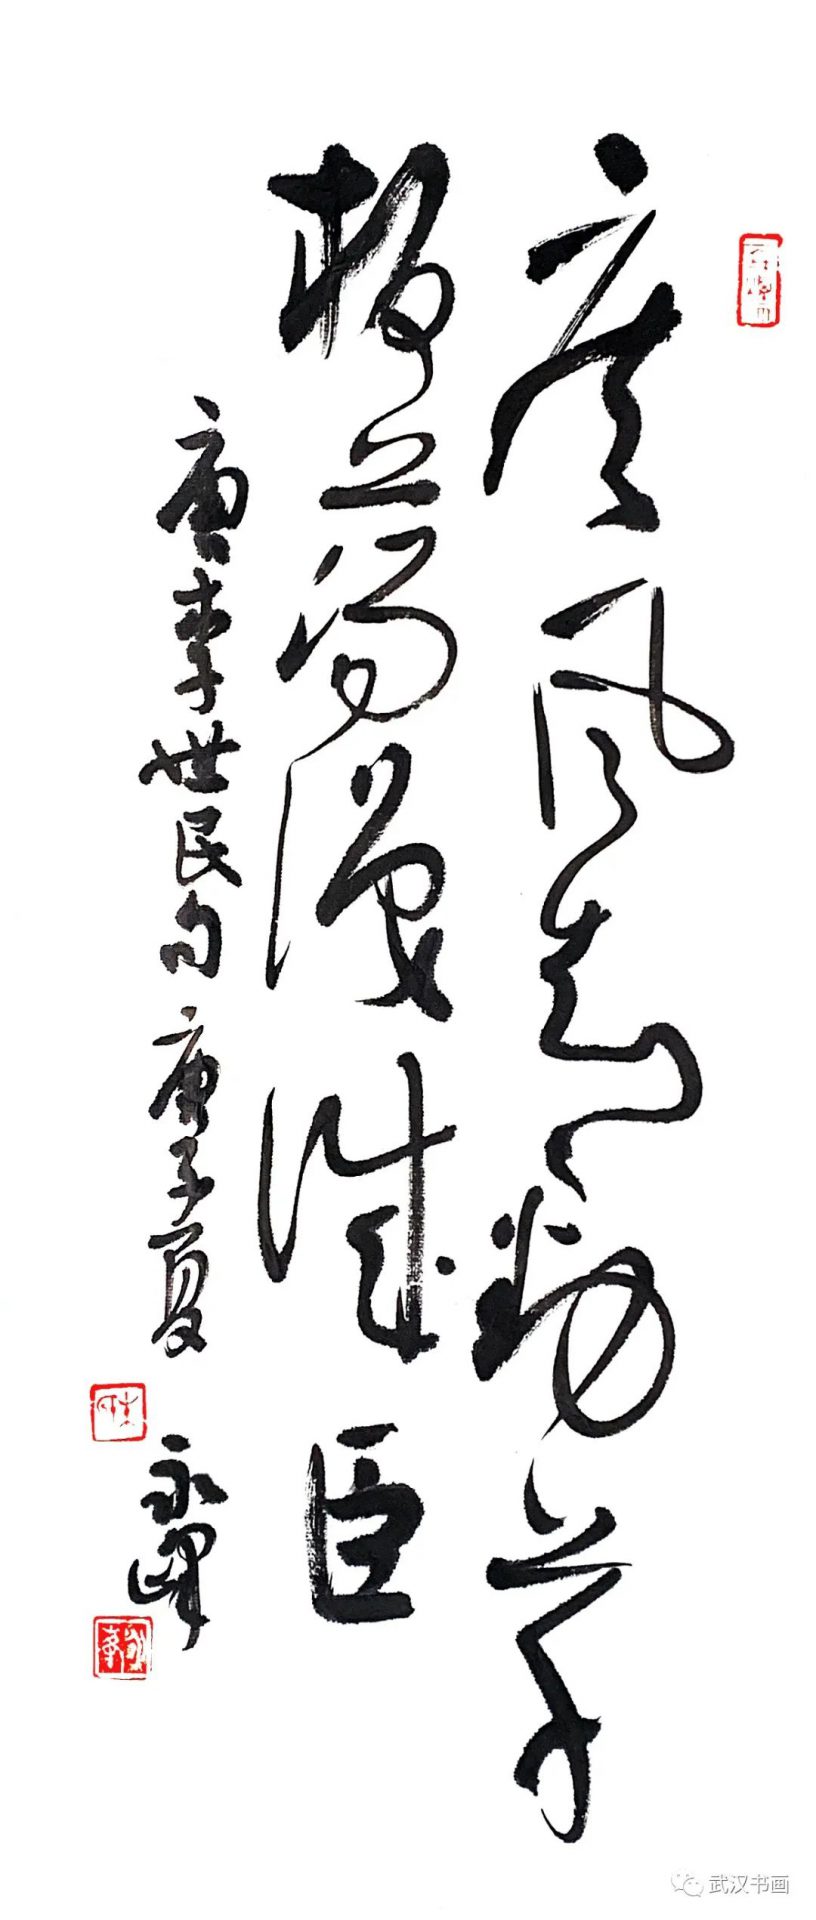 疾风知劲草
板荡识诚臣
唐李世民句 庚子夏 永峰
武汉书画